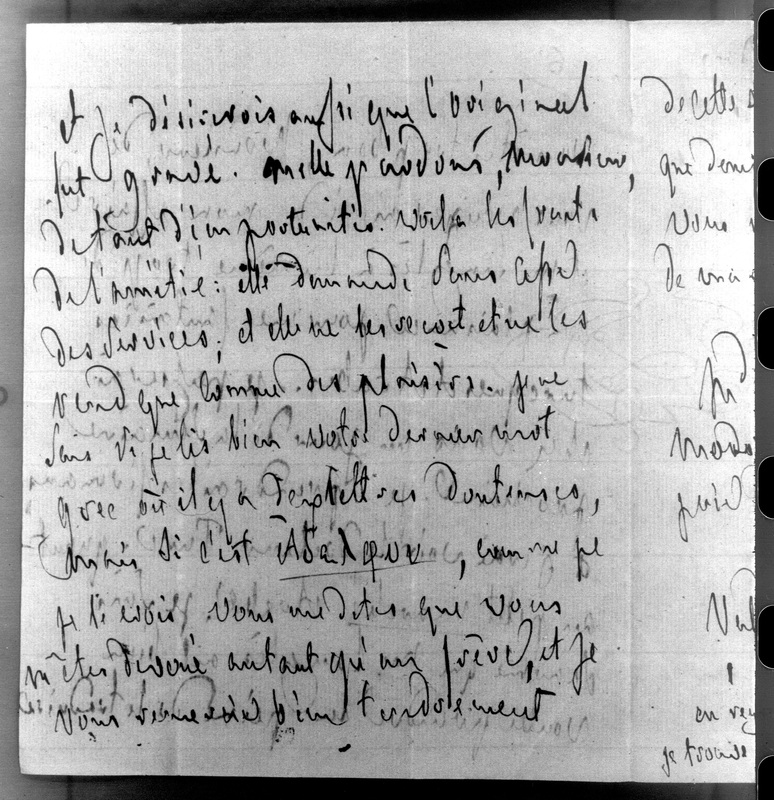 et je désirerois aussi que l'original
fut gravé. mille pardons, Monsieur,
de tant d'importunités. voila les fruits
de l'amitié: elle demande sans cesse
des services; et elle ne les reçoit et ne les
rend que comme des plaisirs. je ne
sais si je lis bien votre dernier mot
grec où il y a deux lettres douteuses,
mais si c'est, comme je
je le crois vous me dites que vous
m'êtes dévoué autant qu'un frère, et je
vous remercie bien tendrement
de cette
que
vous
de
je trouve